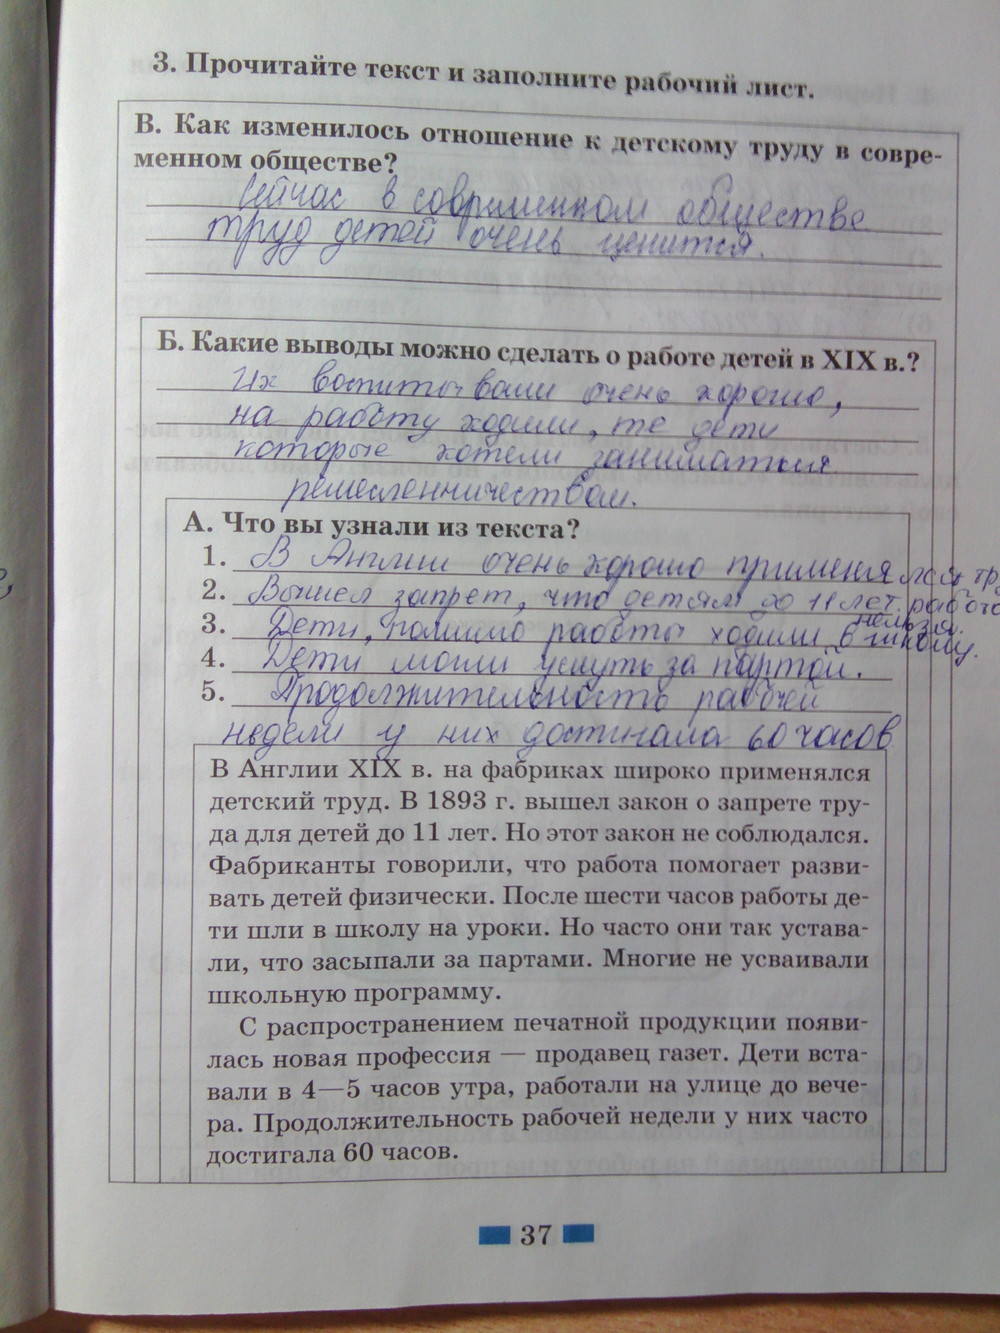 3. Прочитайте текст и заполните рабочий лист.
В. Как изменилось отношение к детскому труду в совре-
менном обществе?
Сейчас в современном обществе
труд детей очень ценится.
Б. Какие выводы можно сделать о работе детей в XIX в.?
Их воспитовали очень хорошо,
на работу ходили, те дети
которые хотели заниматься
ремесленничеством.
А. Что вы узнали из текста?
1. В Англии очень хорошо применялся тр
2. Вышел запрет, что детям до 11 лет работ
нельзя.
3. Дети, помимо работы ходили в школу.
4. Дети могли уснуть за партой.
5. Продолжительность рабочей
недели у них достигала 60 часов
В Англии XIX в. на фабриках широко применялся
детский труд. В 1893 г. вышел закон о запрете тру-
да для детей до 11 лет. Но этот закон не соблюдался.
Фабриканты говорили, что работа помогает разви-
вать детей физически. После шести часов работы де-
ти шли в школу на уроки. Но часто они так устава-
ли, что засыпали за партами. Многие не усваивали
школьную программу.
С распространением печатной продукции появи-
лась новая профессия — продавец газет. Дети вста-
вали в 4—5 часов утра, работали на улице до вече-
ра. Продолжительность рабочей недели у них часто
достигала 60 часов.
37